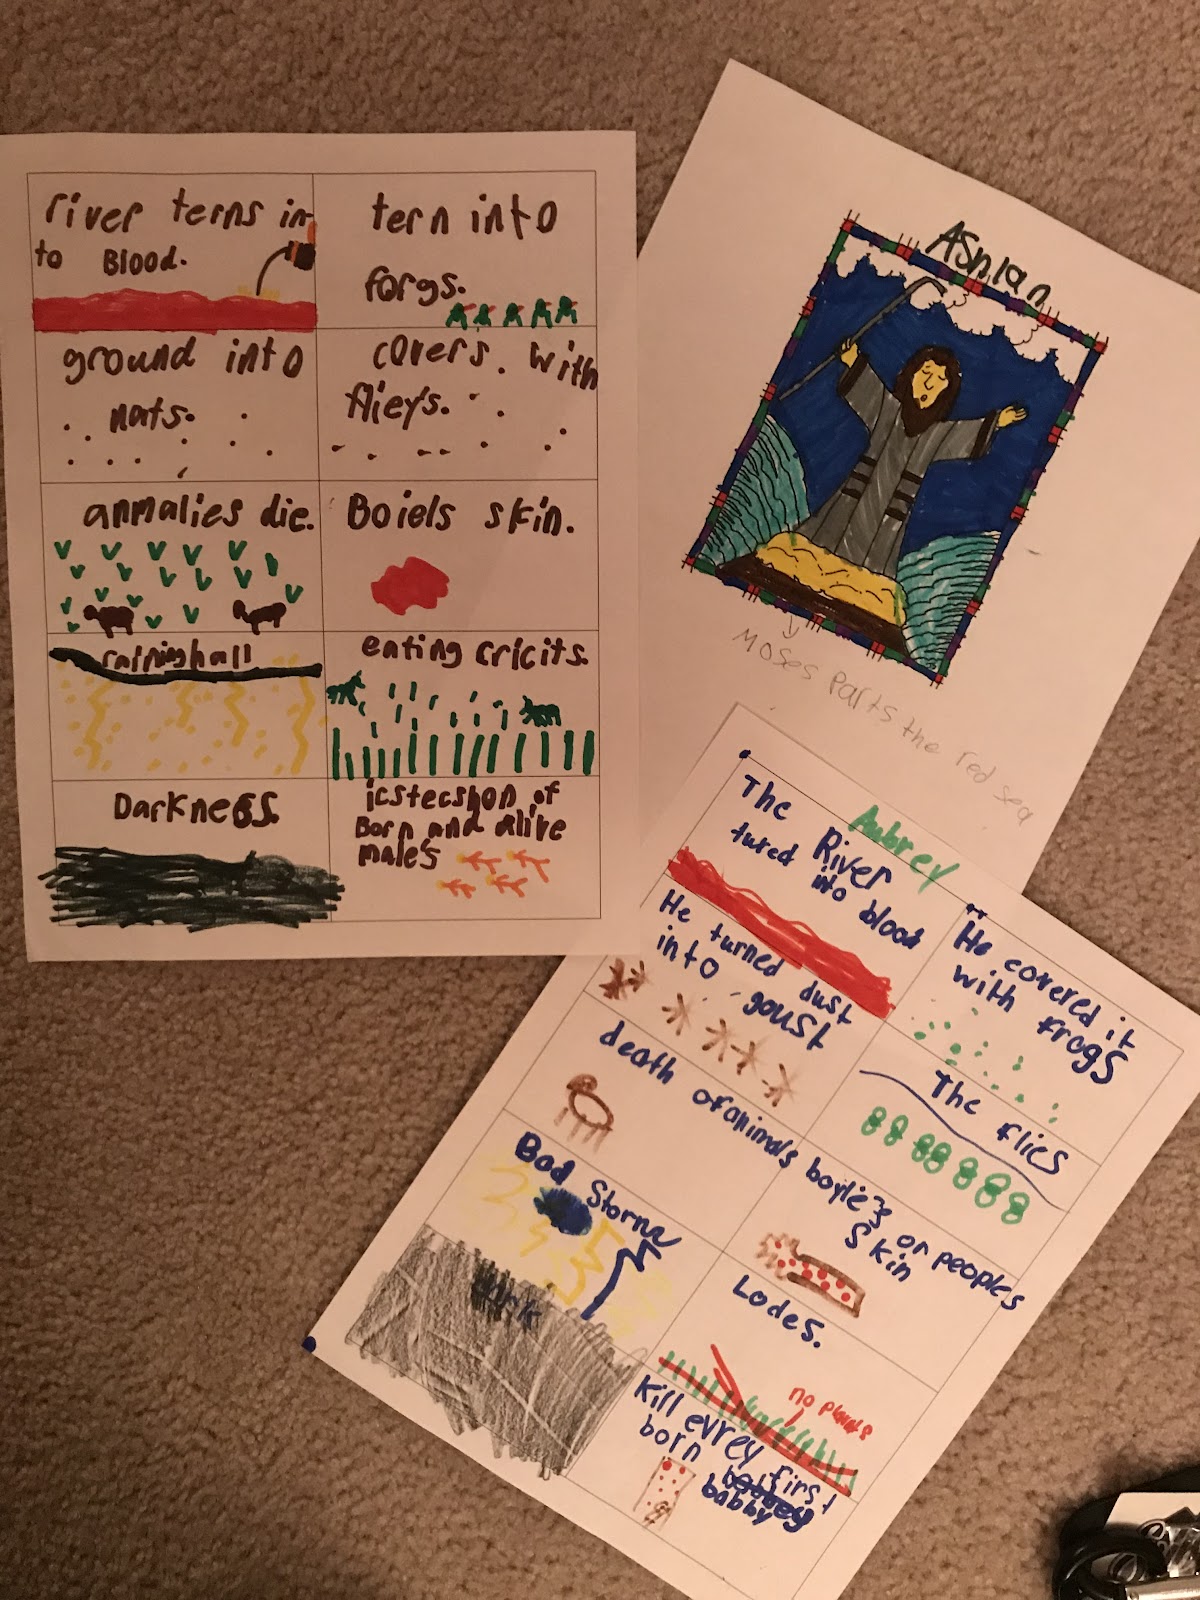 river terns in
to Blood.
tern into
forgs.
ground into
nats.
covers. with
flieys.
anmalies die.
Boiels skin.
raining hall
eating cricits.
Darkness.
icstecshon of
Born and alive
males
Ashlan
Moses Parts the red sea
Aubrey
The River
tured into blood
He covered it
with frogs
He turned dust
into goust
The flies
death of animals
boyles on peoples
skin
Bad Storm
Lodes.
no plants
Dark
Kill evrey first
born
babby